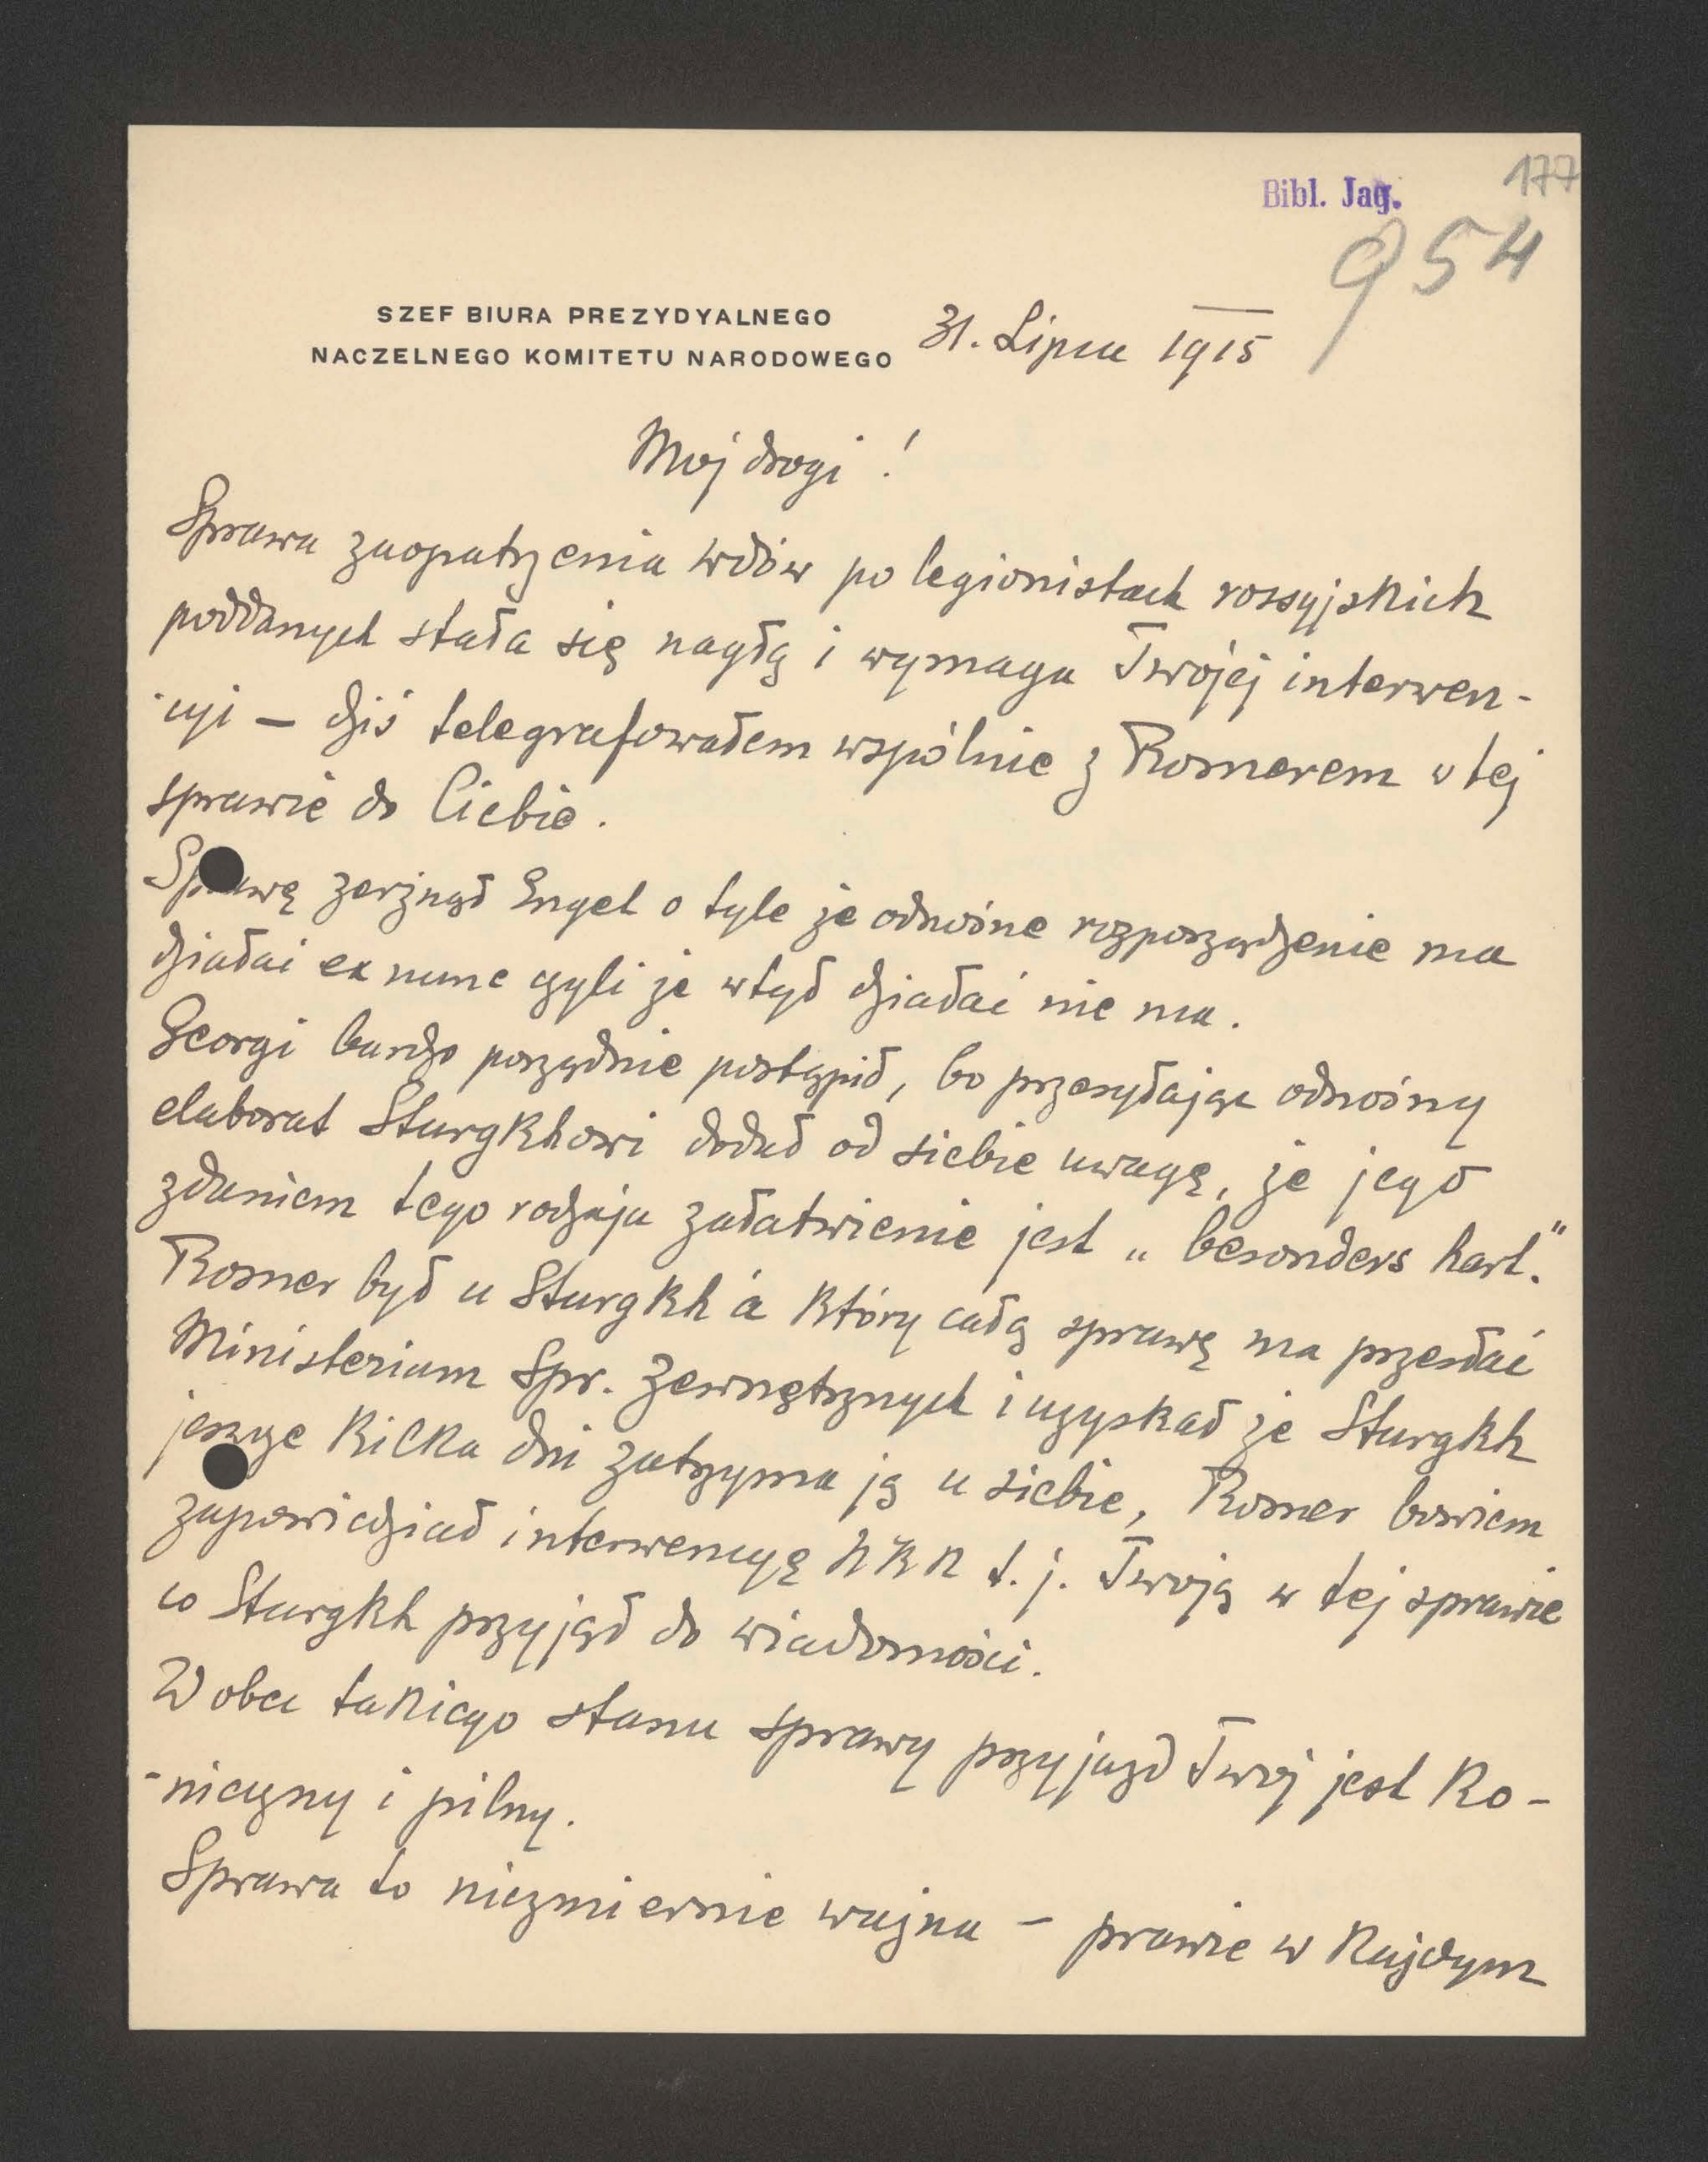 177
Bibl. Jag.
954
SZEF BIURA PREZYDYALNEGO
NACZELNEGO KOMITETU NARODOWEGO
31. Lipca 1915
Mój drogi !
Sprawa zaopatrzenia wdów po legionistach rossyjskich
poddanych stała się nagłą i wymaga Twojej interwen-
-cyi – dziś telegrafowałem wspólnie z Romerem w tej
sprawie do Ciebie.
Sprawę zerżnął Engel o tyle że odnośne rozporządzenie ma
działać ex nunc czyli że wtył działać nie ma.
Georgi bardzo porządnie postąpił, bo przesyłając odnośny
elaborat Sturgkhowi dodał od siebie uwagę, że jego
zdaniem tego rodzaju załatwienie jest „ besonders hart."
Romer był u Sturgkh'a który całą sprawę ma przesłać
Ministerium Spr. Zewnętrznych i uzyskał że Sturgkh
jeszcze kilka dni zatrzyma ją u siebie, Romer bowiem
zapowiedział interwencyę NKN t. j. Twoją w tej sprawie
co Sturgkh przyjął do wiadomości.
Wobec takiego stanu sprawy przyjazd Twój jest ko-
-nieczny i pilny.
Sprawa to niezmiernie ważna – prawie w każdym